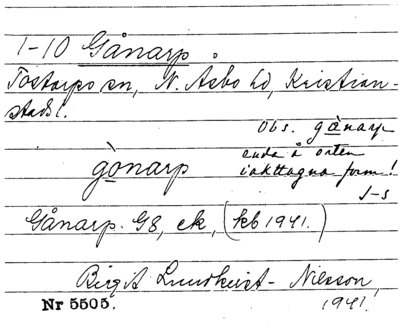 1-10 Gånarp.
Tostarps sn, N. Åsbo hd, Kristian-
stads l.
Obs. gànarp
enda å orten
iakttagna form!
J-s
gònarp
Gånarp. G8, ek, (kb 1941.)
Birgit Lundkvist-Nilsson,
1941.
Nr 5505.